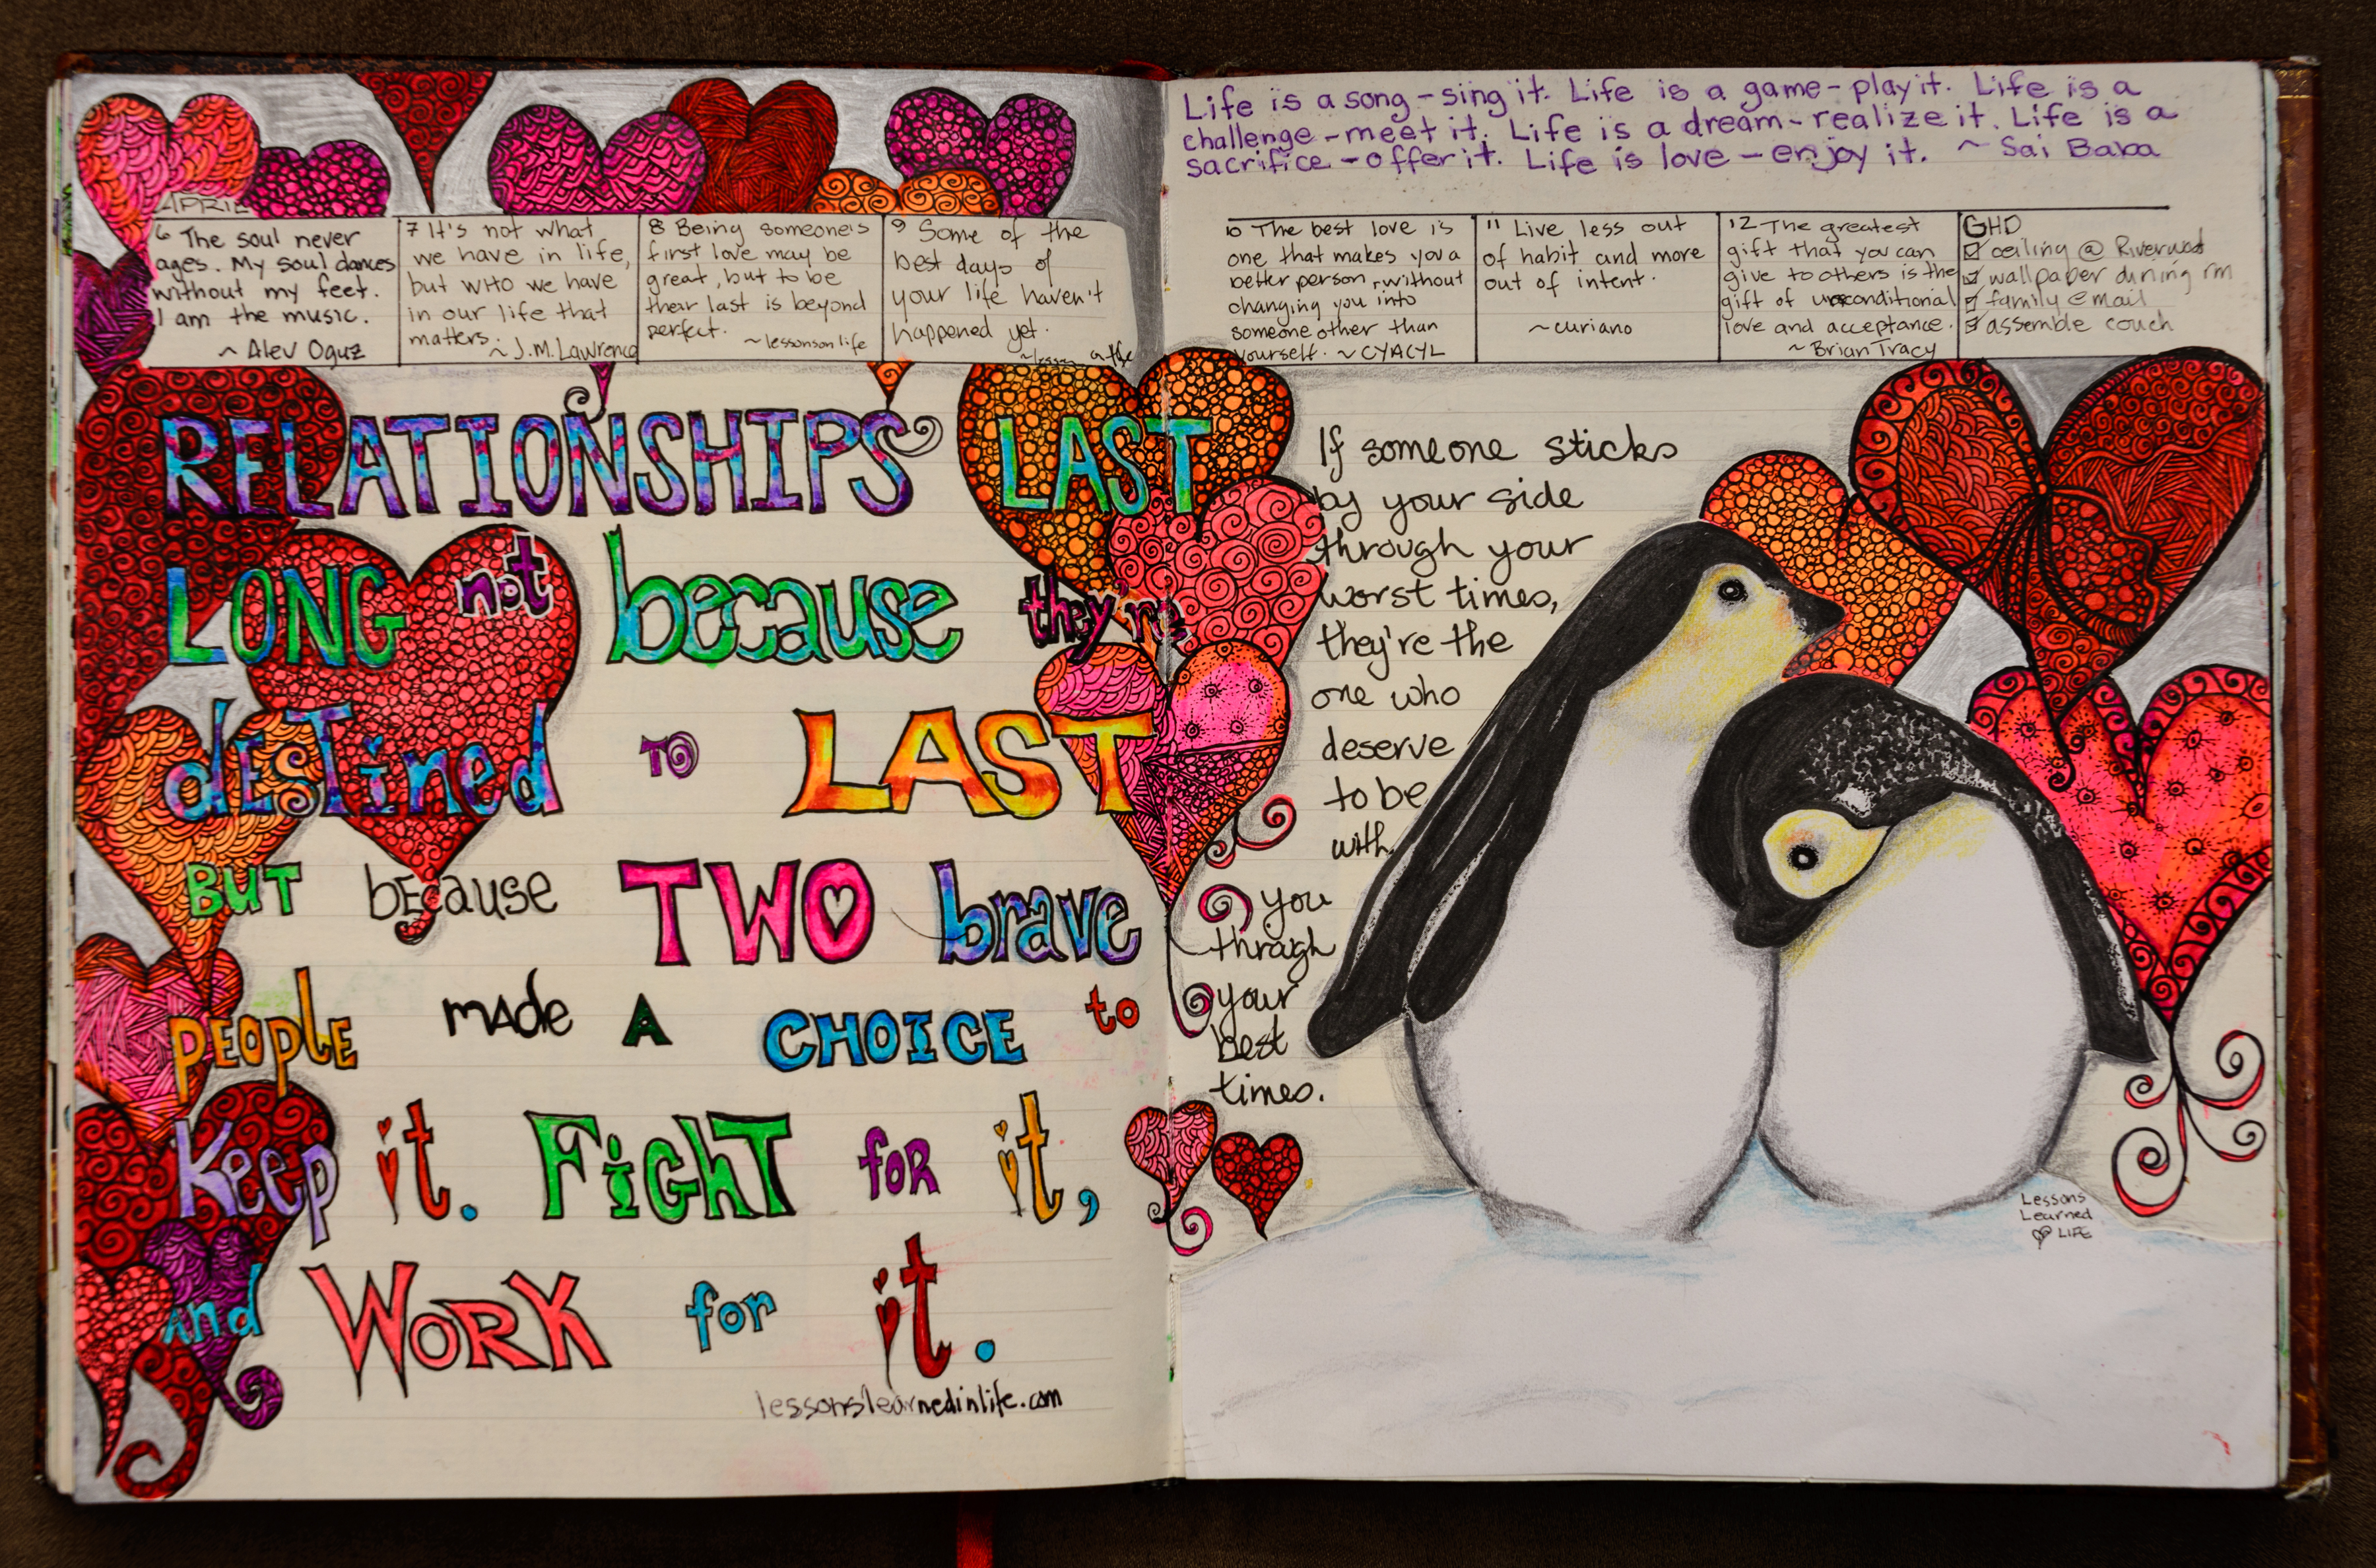 APRIL
6 The soul never
ages. My soul dances
without my feet.
I am the music.
~ Alev Oguz
7 It's not what
we have in life,
but WHO we have
in our life that
matters.
~ J.M. Lawrence
8 Being someone's
first love may be
great, but to be
their last is beyond
perfect.
~ lessonson life
9 Some of the
best days of
your life haven't
happened yet.
RELATIONSHIPS LAST
LONG not because they're
destined TO LAST
BUT because TWO brave
PEOPLE made A CHOICE to
Keep it. FIGHT for it,
And WORK for it.
lessonslearnedinlife.com
Life is a song - sing it. Life is a game - play it. Life is a
challenge - meet it. Life is a dream - realize it. Life is a
sacrifice - offer it. Life is love - enjoy it. ~ Sai Baba
10 The best love is
one that makes you a
better person, without
changing you into
someone other than
yourself. ~ CYACYL
11 Live less out
of habit and more
out of intent.
~ curiano
12 The greatest
gift that you can
give to others is the
gift of unconditional
love and acceptance.
~ Brian Tracy
GHD
ceiling @ Riverwood
wallpaper dining rm
family email
assemble couch
If someone sticks
by your side
through your
worst times,
they're the
one who
deserve
to be
with
you
through
your
best
times.
Lessons
Learned
LIFE